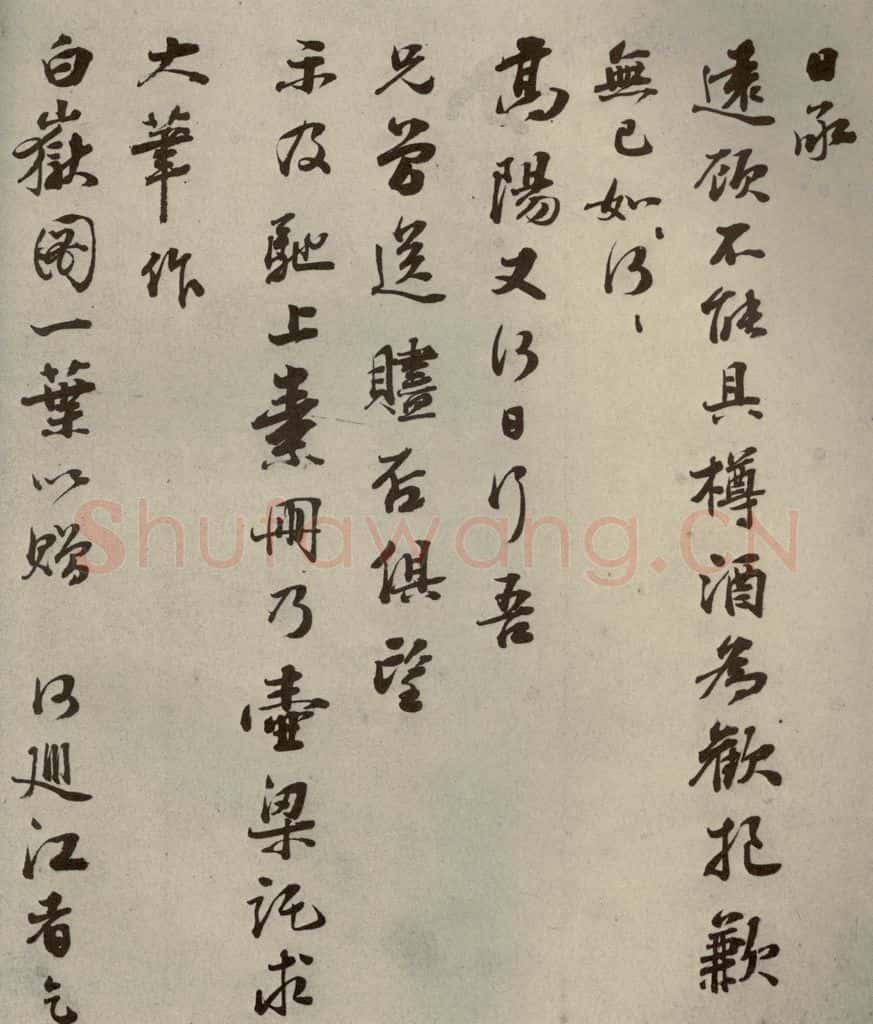 日承
遠顧不能具樽酒為歡抱歉
無已如何〻
高陽又何日行吾
兄曾送贐否俱望
示及馳上素冊乃壺梁託求
大筆作
白嶽圖一葉以贈 何巡江者乞
Shufawang.CN